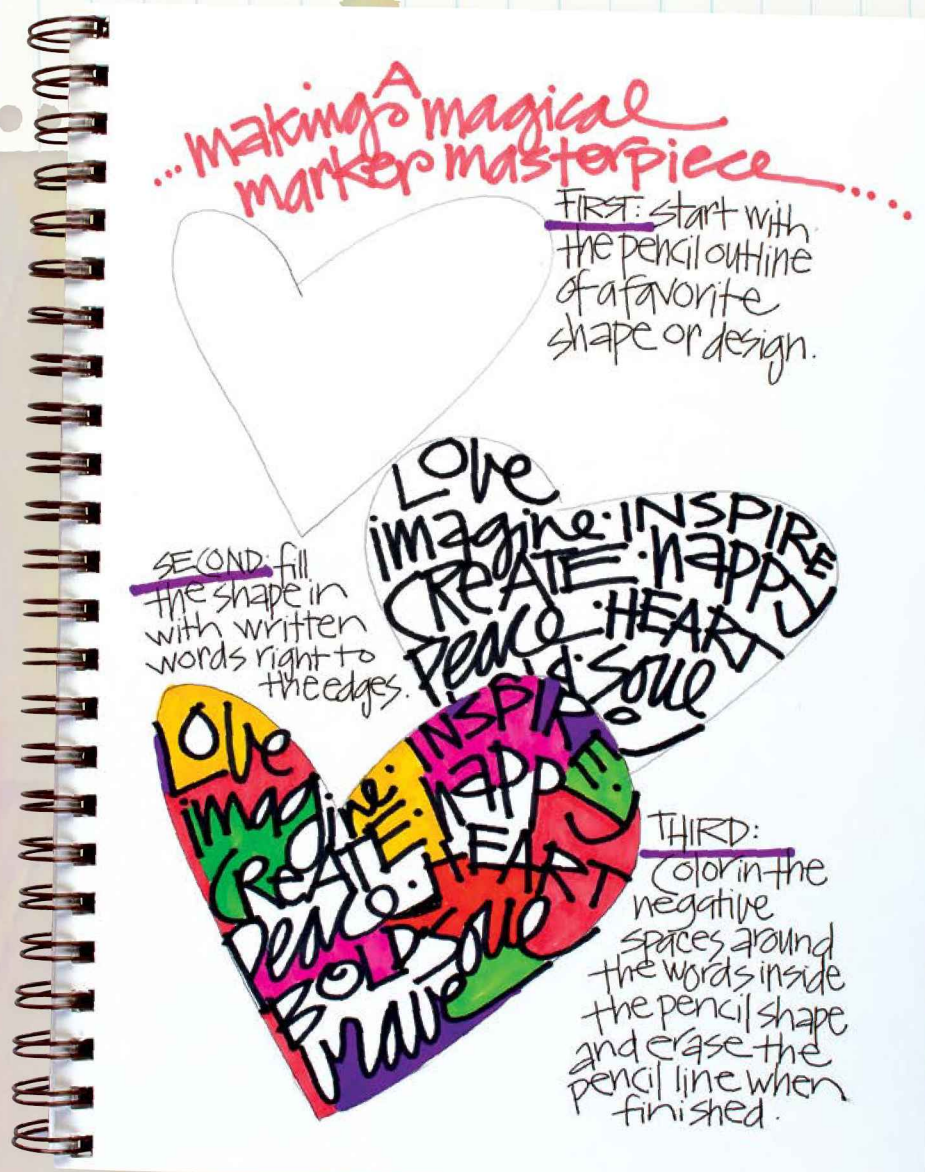 ...making A magical
marker masterpiece.....
FIRST: start with
the pencil outline
of a favorite
shape or design.
LOve
imagine·INSPIRE
CREATE·happy
peace·HEART
Soul
SECOND: fill
the shape in
with written
words right to
the edges.
LOve
imagine·INSPIRE·
CREATE·happy
peace·HEART
BOLD Soul
THIRD:
Color in the
negative
spaces around
the words inside
the pencil shape
and erase the
pencil line when
finished.